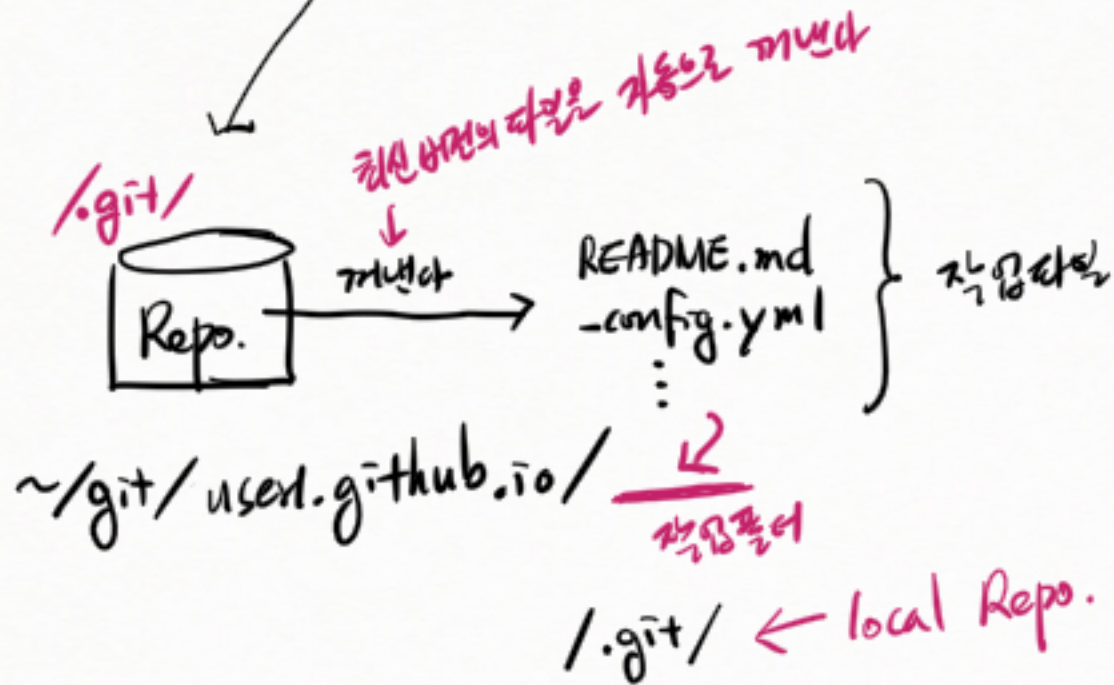 최신 버전의 파일을 자동으로 꺼낸다
/.git/
꺼낸다
Repo.
README.md
-config.yml
작업파일
~/git/user1.github.io/
작업폴더
/.git/ ← local Repo.